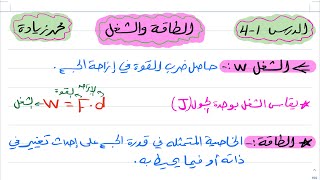 الدرس 1-4 الطاقة والشغل محمد زيادة
الشغل W :- حاصل ضرب القوة في إزاحة الجسم.
* يقاس الشغل بوحدة الجول (J)
الإزاحة القوة
الشغل ← W = F.d
* الطاقة :- الخاصية المتمثله في قدرة الجسم على إحداث تغيير في
ذاته أو فيما يحيط به.